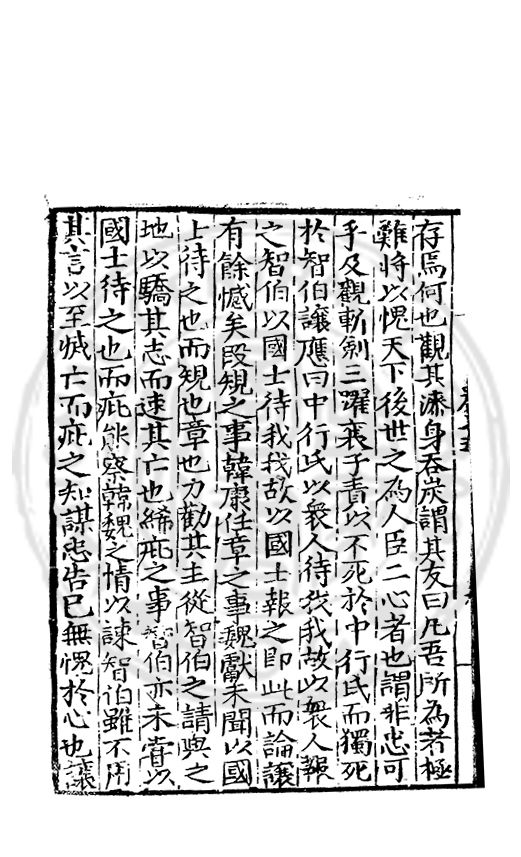 存焉何也觀其漆身吞炭謂其友曰凡吾所為者極
難將以愧天下後世之為人臣二心者也謂非忠可
乎及觀斬劍三躍襄子責以不死於中行氏而獨死
於智伯讓應曰中行氏以衆人待我我故以衆人報
之智伯以國士待我我故以國士報之即此而論讓
有餘憾矣段規之事韓康任章之事魏獻未聞以國
士待之也而規也章也力勸其主從智伯之請與之
地以驕其志而速其亡也絺疵之事智伯亦未嘗以
國士待之也而疵能察韓魏之情以諫智伯雖不用
其言以至滅亡而疵之知謀忠告已無愧於心也讓